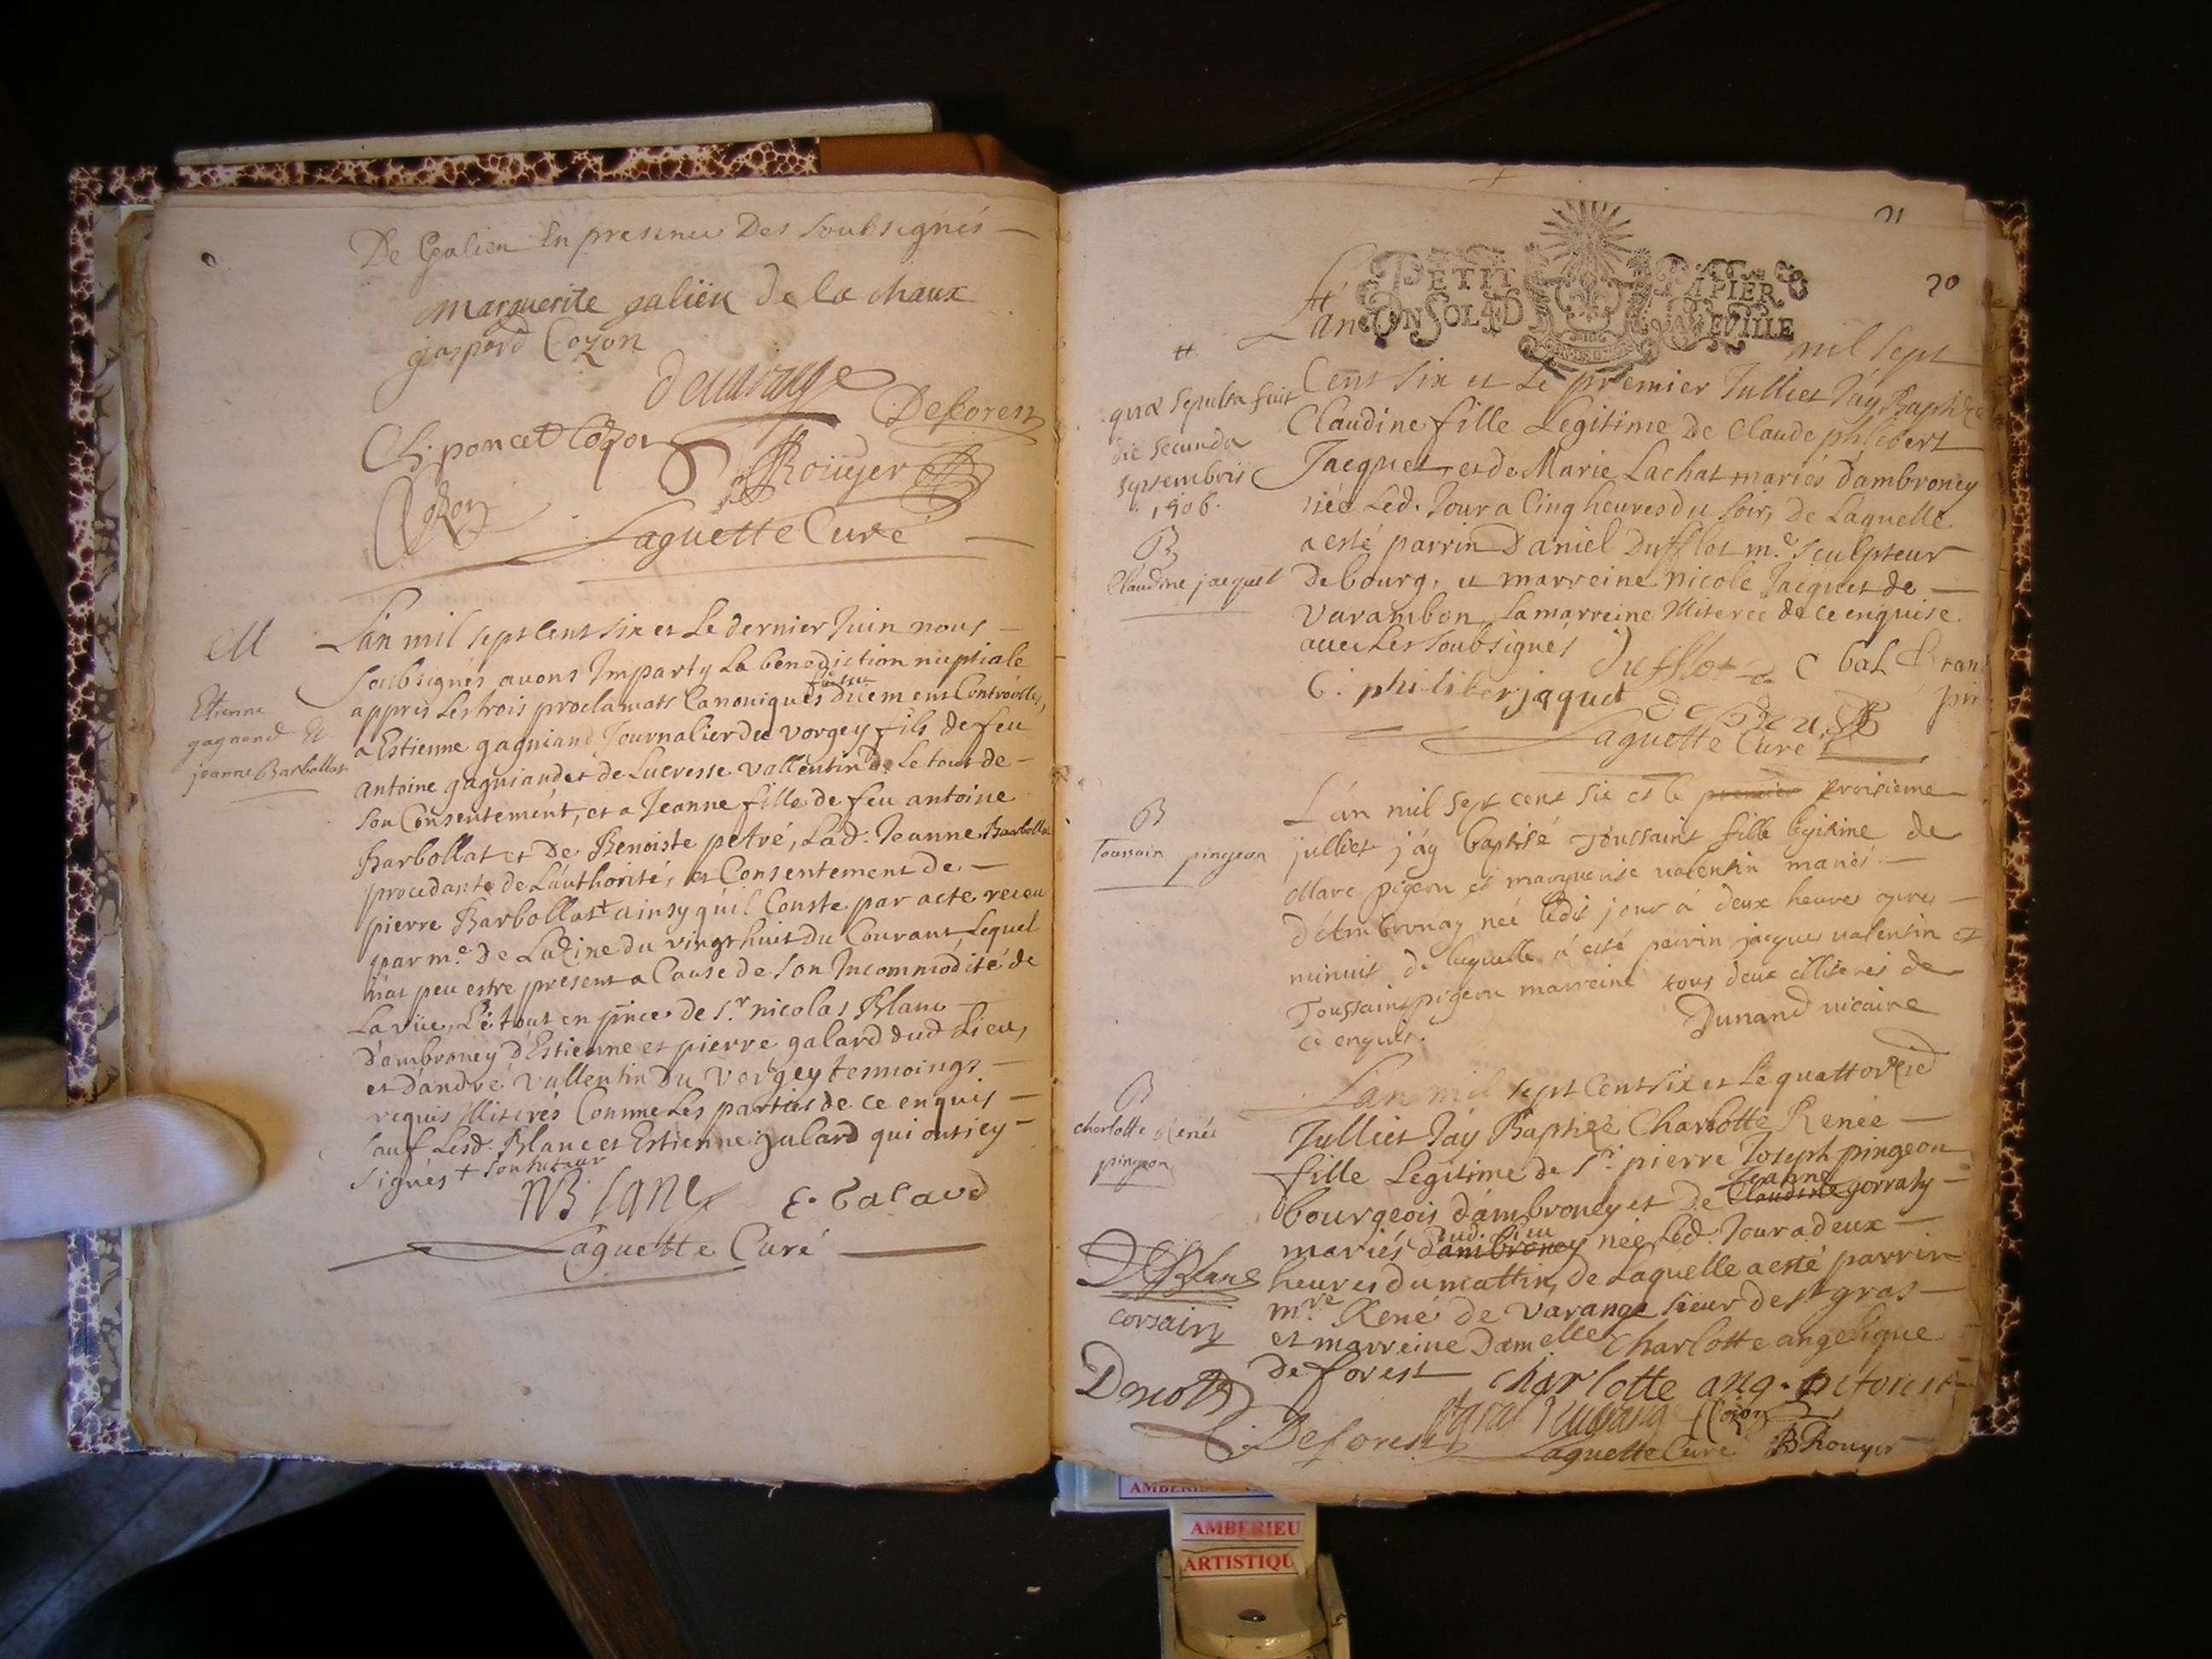 De Galien En presence Des soubsignés
marguerite galiën De la chaux
gaspard Cozon
Deforest
Ch. poncet Cozon
Rouyer
Cozon
Laguette Curé
M
Etienne
gagnand Et
jeanne Barbollat
L'an mil sept Cent six et Le dernier Juin nous
soubsignés avons Imparty La benediction nuptiale
appres Les trois proclamats Canoniques duement Controolles,
a Estienne gagniand Journalier du vorgey fils de feu
antoine gagniand et de Lucresse vallentin De Le tout de
son Consentement, et a Jeanne fille de feu antoine
Barbollat et De Benoiste petré, Lad. Jeanne Barbollat
procedante de L'authorité, et Consentement de
pierre Barbollat + ainsy qu'il Conste par acte receu
par m.e De Luzine du vingt huit du Courant Lequel
n'at peu estre present a Cause de son Incommodité de
La vüe, Le tout en pnce de s.r nicolas Blanc
d'ambroney d'Estienne et pierre galard dud Lieu,
et d'andré vallentin Du Vorgey tesmoings
requis Illiterés Comme Les parties de ce enquis
sauf Lesd. Blanc et Estienne galard qui ont icy
signés + son tuteur
N Blanc E. Galard
Laguette Curé
21
20
PETIT PAPIER
UN SOL 4 D LA FEUILLE
L'an mil sept
Cent six et Le premier Julliet J'áy Baptizé
Claudine fille Legitime De Claude philibert
Jacquet et de Marie Lachat mariés d'ambroney
née Led. Jour a Cinq heures du soir, De Laquelle
a esté parrin Daniel Dufflot m.e sculpteur
De bourg, et marreine nicole Jacquet de
Varambon, La marreine Illiterée de ce enquise
avec Les soubsignés
Dufflot
C. philiber jaquet
Laguette Curé
quæ sepulta fuit
die secunda
septembris
1706.
B
Claudine jacquet
B
Toussain pingeon
L'án mil sept cent six et le premier troisieme
julliet j'áy baptisé Toussaint fille legitime de
Marc pigeon et marguerite valentin mariés
d'Ambronay née ledit jour á deux heures apres
minuit de laquelle á esté parrin jacques valentin et
Toussaint pigeon marreine tous deux illiterés de
ce enquis. Dunand vicaire
B
charlotte Renée
pingeon
L'an mil sept Cent six et Le quattorzie
Julliet J'áy Baptizé Charlotte Renée
fille Legitime de s.r pierre Joseph pingeon
bourgeois d'ambroney et De Claudine Jeanne gorraty
mariés d'ambroney dud. Lieu née Led. Jour a deux
heures du mattin, de Laquelle a esté parrin
m.re René de Varange sieur de st gras
et marreine Damelle Charlotte angelique
de forest charlotte ang. Deforest
Blanc
corsain
Deforest Cozon
Laguette Curé B Rouyer
AMBERIEU
ARTISTIQU